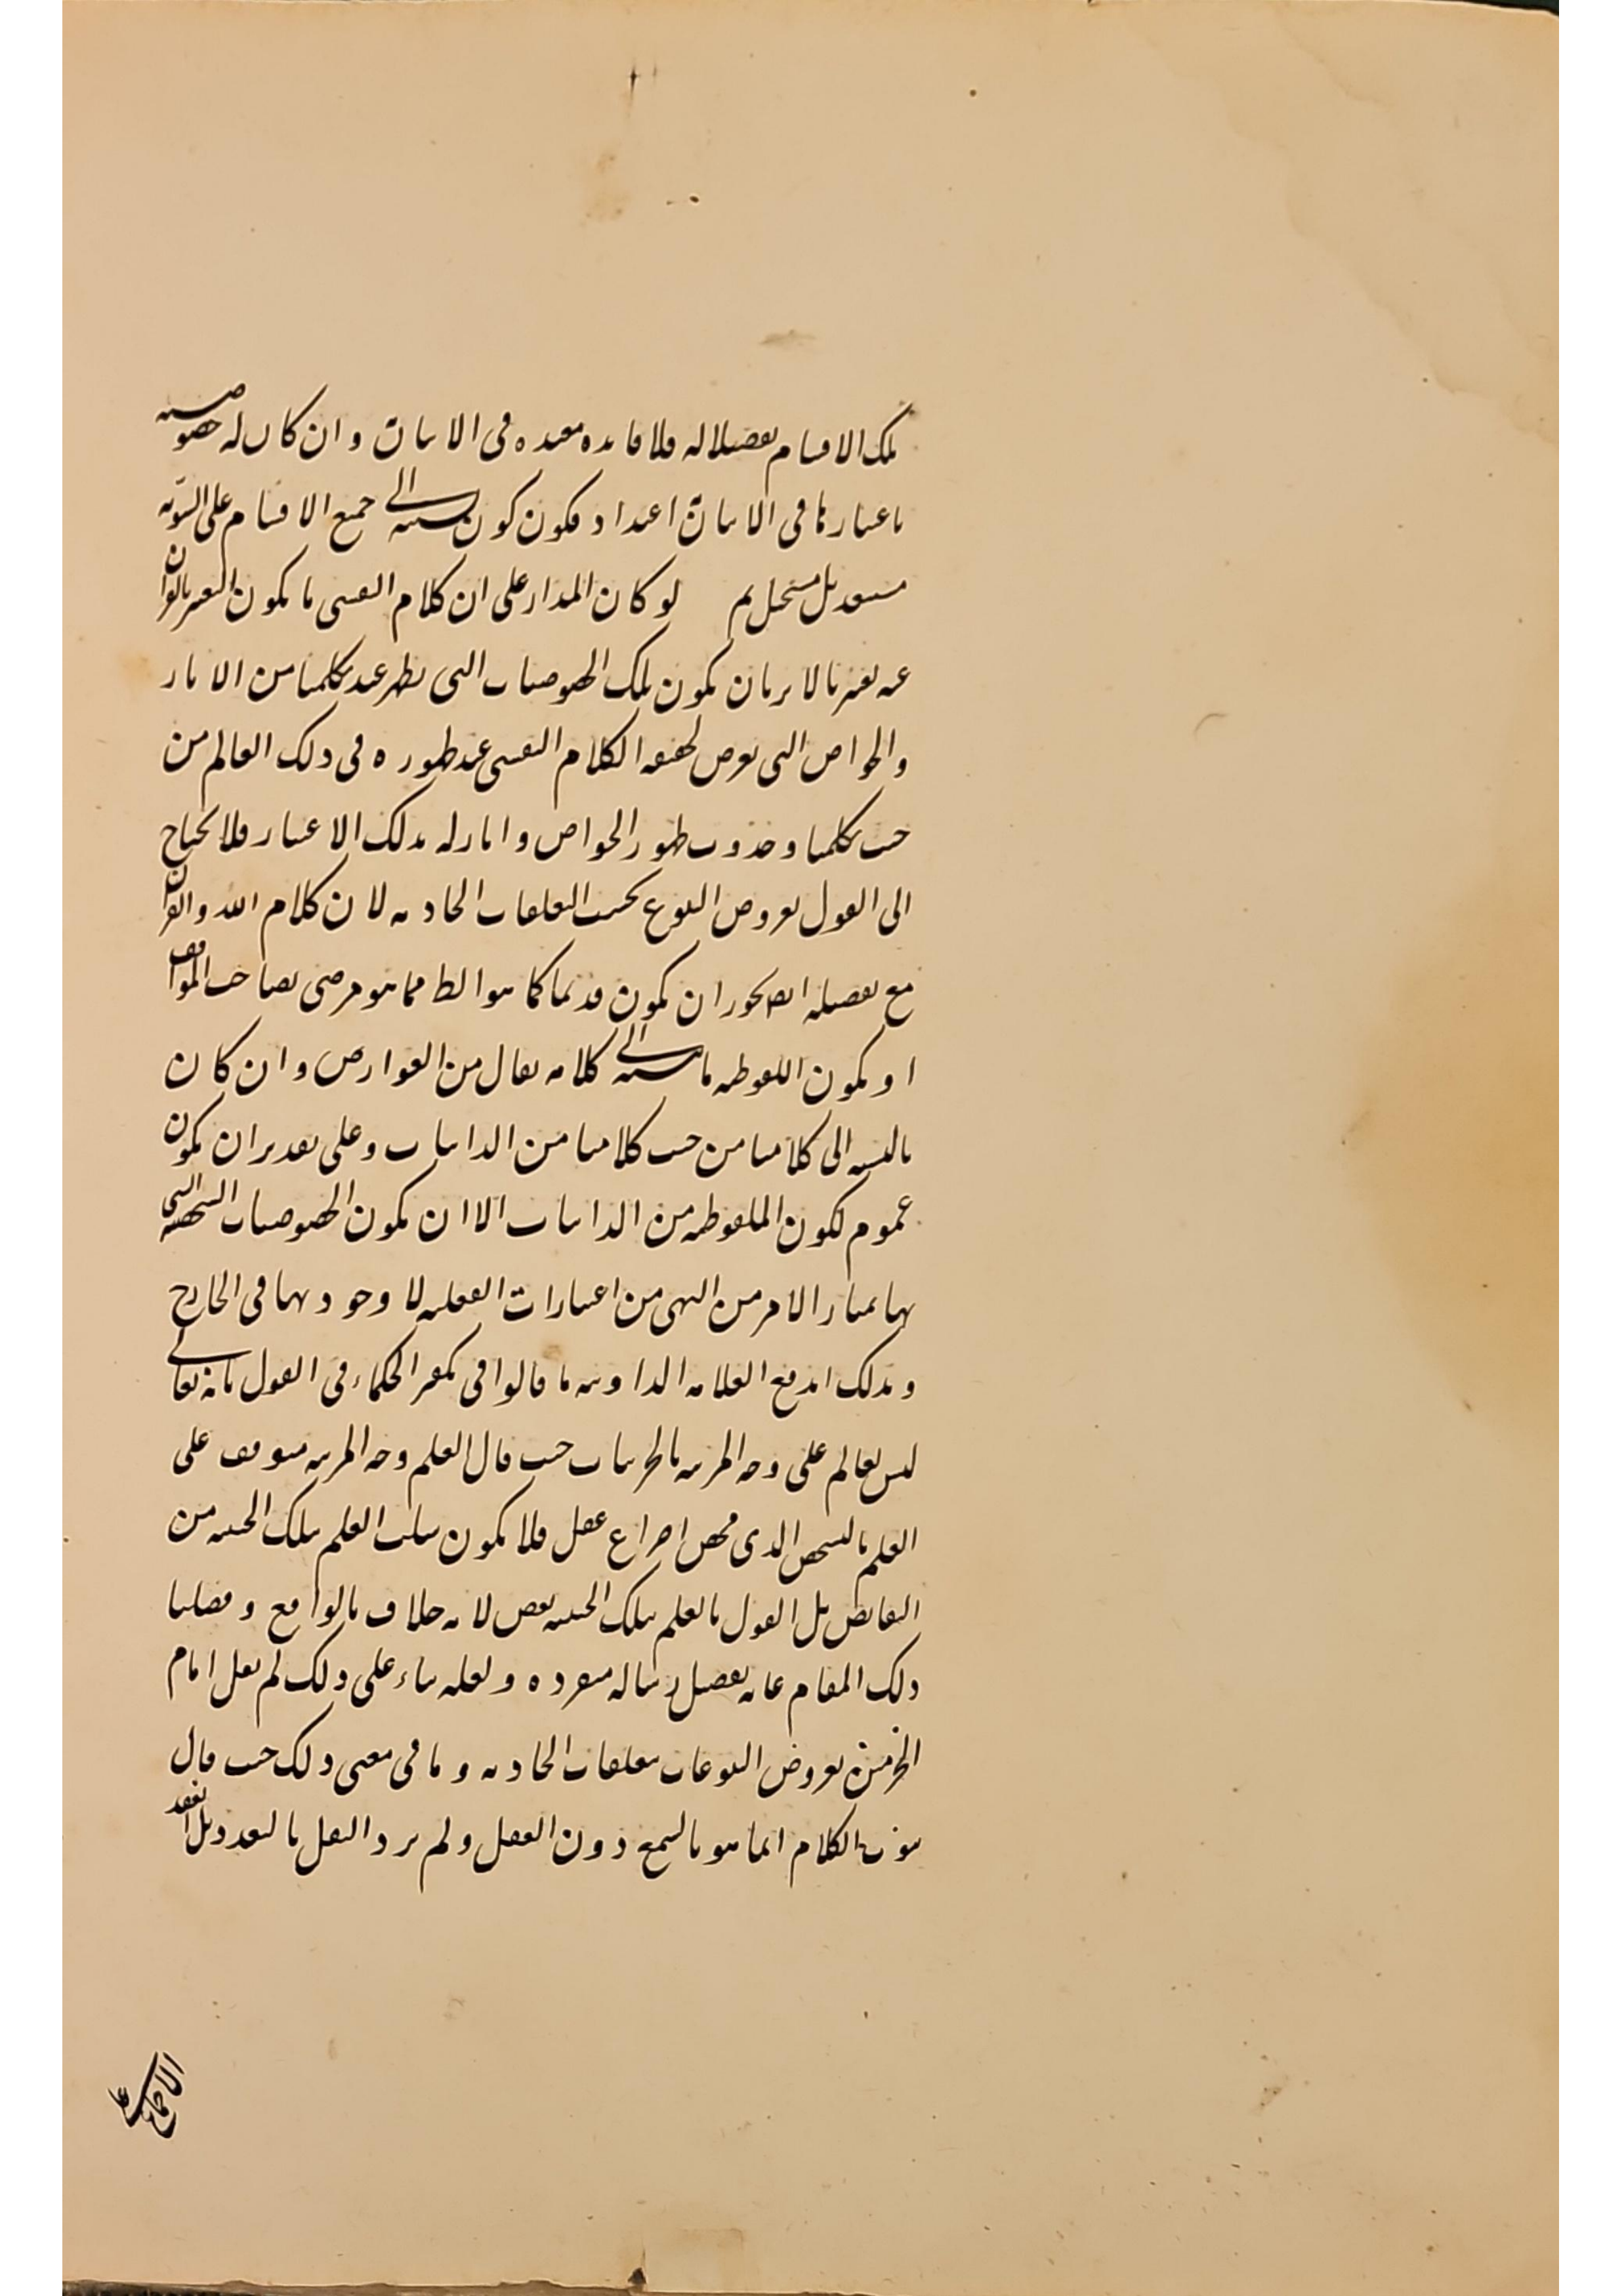 تلك الاقسام تفصيلا له فلا فائده معتده فى الاثبات وان كان له خصوصيه
باعتبارها فى الاثبات اعتداد فكون كون نسبته الى جميع الاقسام على السويه
مستبعد بل مستحيل ثم لو كان المدار على ان كلام النفسى ما يكون التعبير بالقران
عنه تعبيرنا لا يريان يكون تلك الخصوصيات التى يظهر عند تكلمنا من الاثار
والخواص التى يعرض لحقيقه الكلام النفسى عند ظهوره فى ذلك العالم من
حيث تكلمنا وحدوث ظهور الخواص واثار له بذلك الاعتبار فلا يحتاج
الى القول بعروض التنوع بحسب التعلقات الحادثه لان كلام الله والقران
مع تفصيله ايضا يجوز ان يكون قديما كما هو الظ مما هو مرضى لصاحب المواقف
او يكون الملفوظيه بالنسبه الى كلامه تعالى من العوارض وان كان
بالنسبه الى كلامنا من حيث كلامنا من الذاتيات وعلى تقدير ان يكون
عموم لكون الملفوظيه من الذاتيات الا ان يكون الخصوصيات الشخصيه التى
بها يمتاز الامر من النهى من اعتبارات العقليه لا وجود بها فى الخارج
وبذلك اندفع العلامه الداونيه ما قالوا فى تكفير الحكماء فى القول بانه تعالى
ليس بعالم على وجه الجزئيه بالجزئيات حيث قال العلم وجه الجزئيه متوقف على
العلم بالتشخص الذى محض اختراع عقل فلا يكون سلب العلم بتلك الحيثيه من
النقايص بل القول بالعلم بتلك الحيثيه نقص لانه خلاف بالواقع وفصلنا
ذلك المقام غايه تفصيل رساله منفرده ولعله بناء على ذلك لم يقل امام
الحرمين بعروض التنوعات بتعلقات الحادثه وما فى معنى ذلك حيث قال
ثبوت الكلام انما هو بالسمع دون العقل ولم يرد النقل بالتعدد بل انعقد
الاجماع على